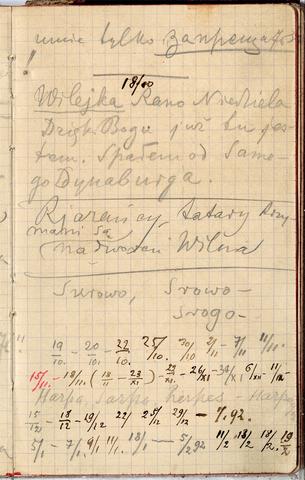 umie tylko Запрещается
!
18/00
Wilejka Rano Niedziela
Dzięk Bogu już tu jes-
tem. Spałem od Same-
go Dynaburga.
Rjazańcy, Tatary trzy-
mani są
na dworcu Wilna
Surowo, Srowo-
Srogo-
19/10. - 20/10. - 22/10. 25/10. 30/10 2/11 - 7/11. 11/11.
15/11. - 18/11. ( 18/11 - 23/XI ) - 29/XI. - 26/XI - 6/XII - 11/12.
Harpa, Sarpa, Herpes - Harpa
15/12 - 18/12 - 19/12 22/ 25/12 29/12 - 7.92.
5/1 - 7/1 9/1 11/1. 18/1 - 5/2 92 11/2 13/2 18/2. 19/2